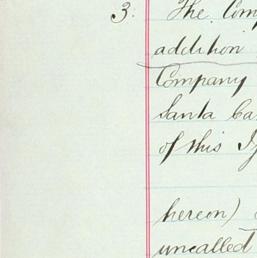 3. The Com
addition
Company
Santa Ca
of this
hereon)
uncalled